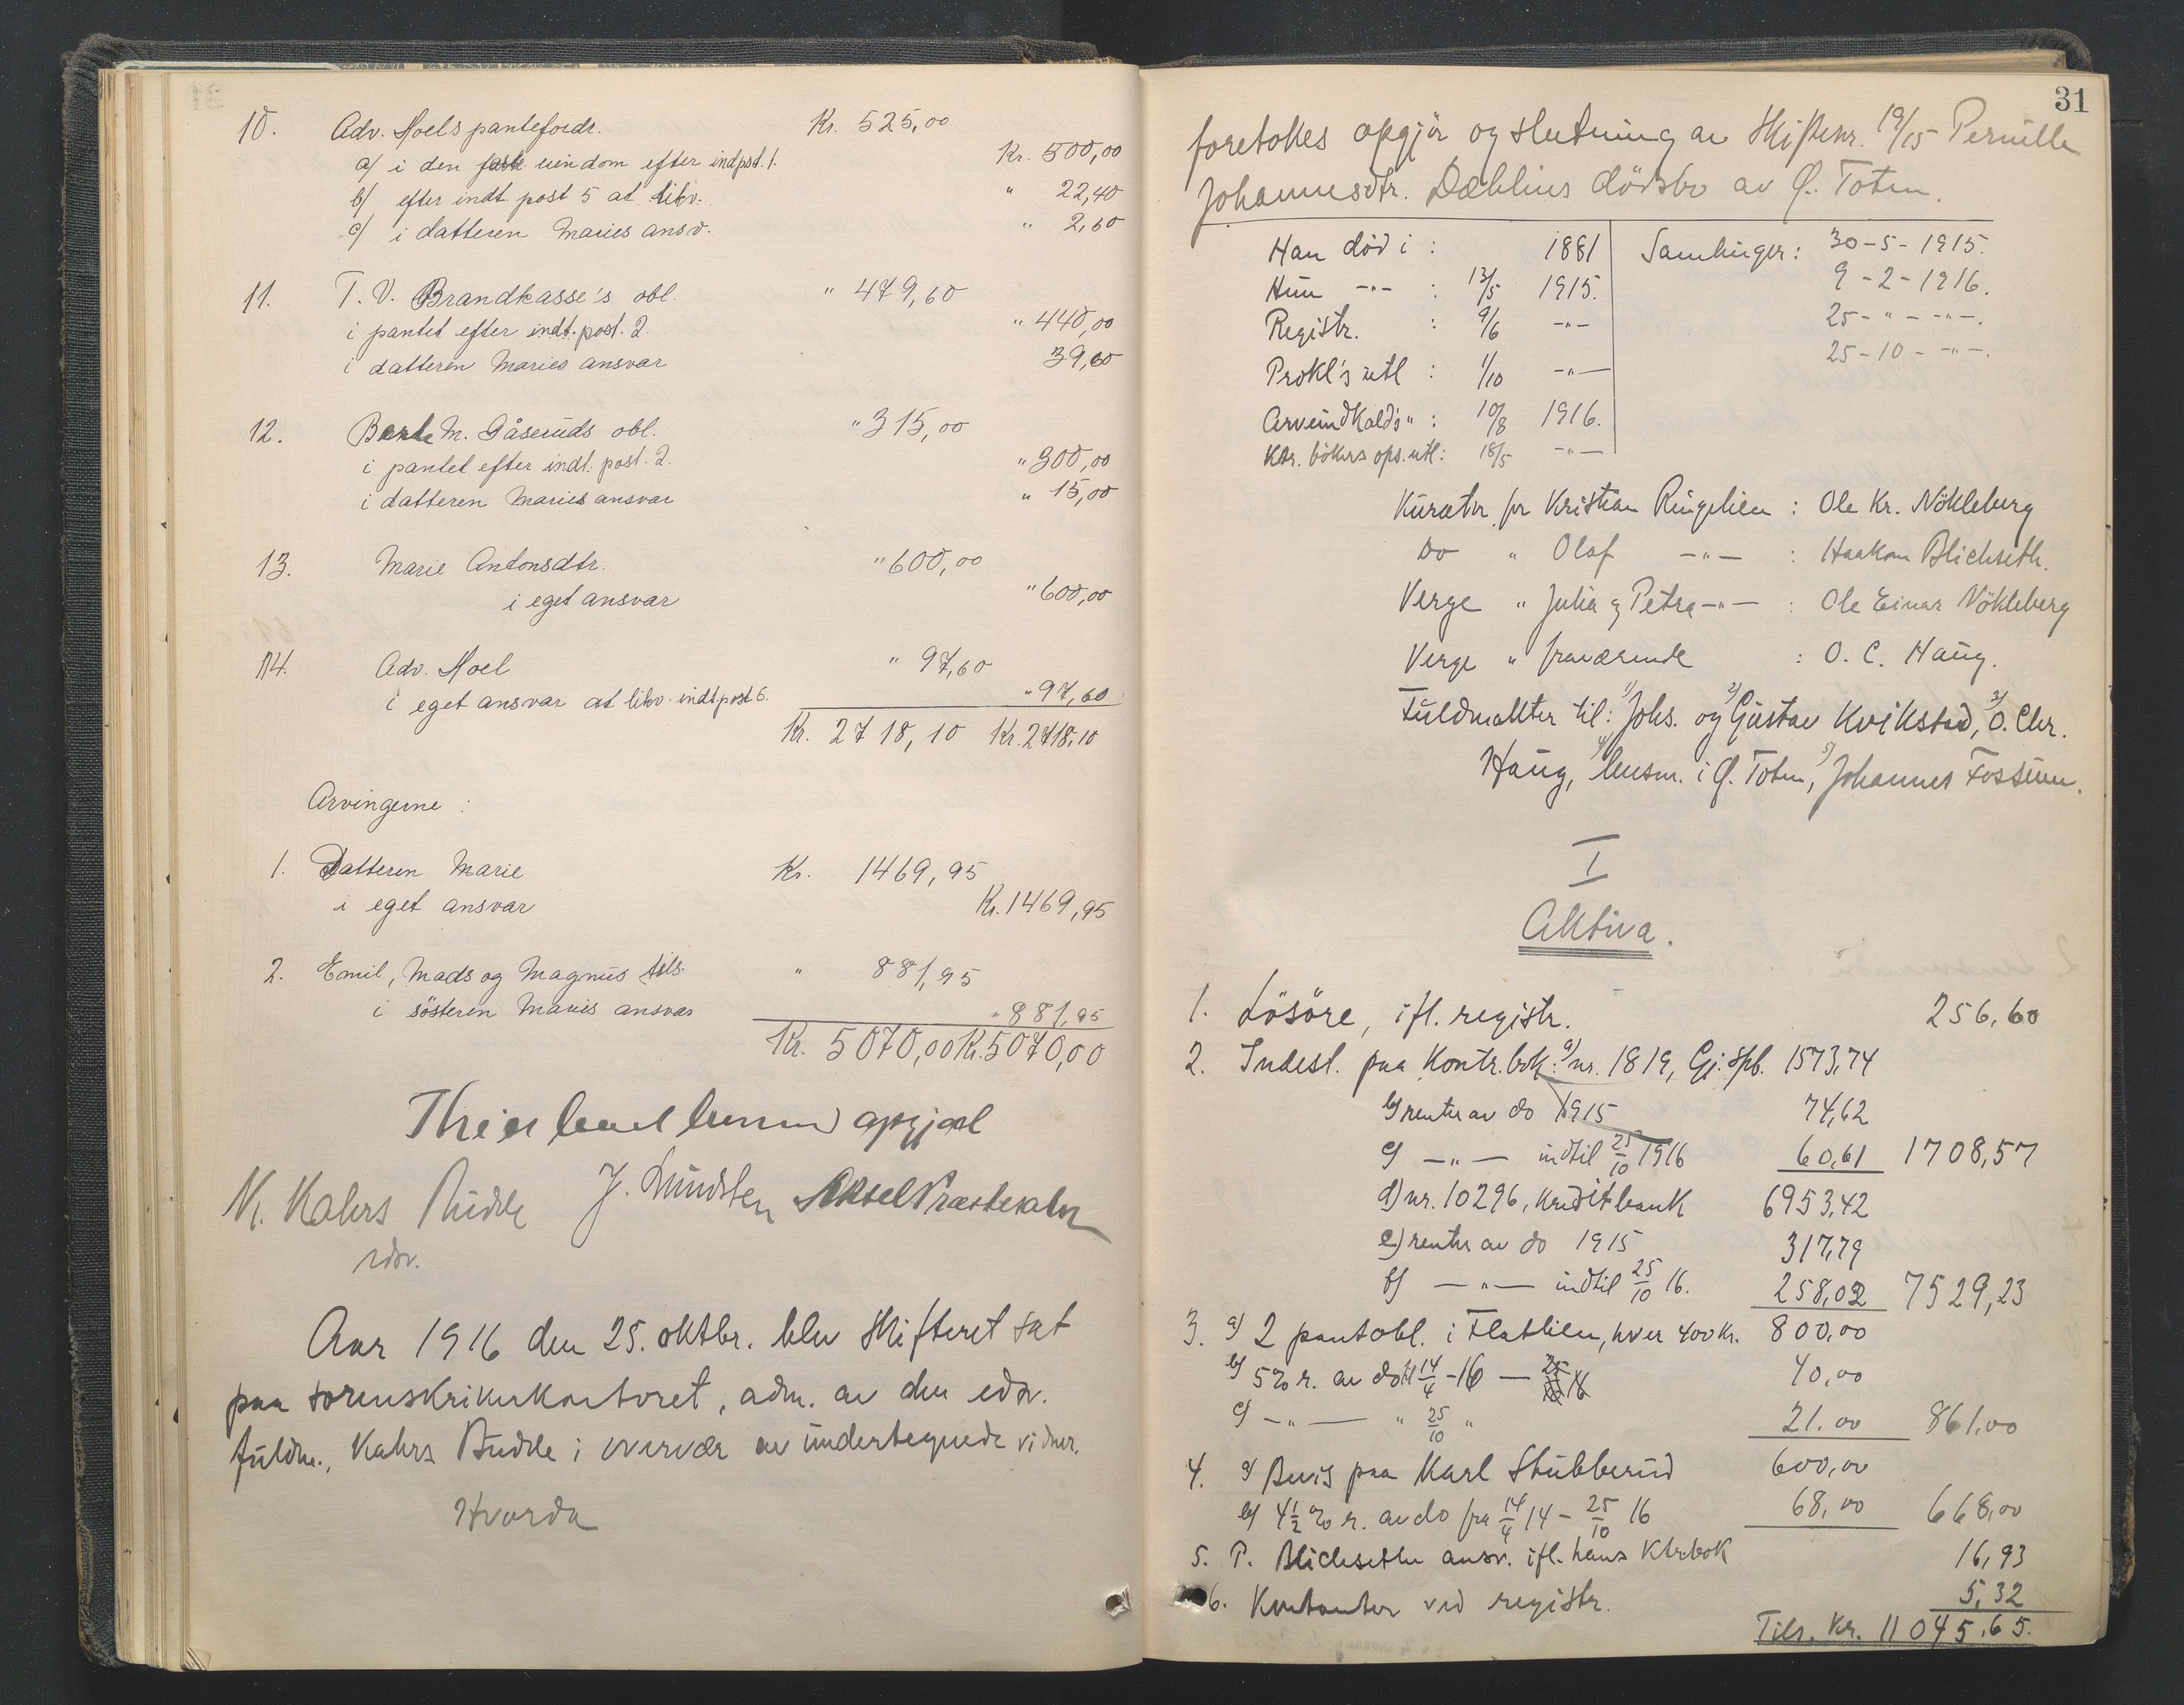 10. Adv. Hoels pantefordr. Kr. 525,00
a) i den faste eiendom efter indpost. 1. Kr. 500,00
b) efter indt. post 5 at likv. " 22,40
c) i datteren Maries ansv. " 2,60
11. T. V. Brandkasse's obl. " 479,60
i pantet efter indt. post. 2. " 440,00
i datteren Maries ansvar 39,60
12. Berte M. Gåseruds obl. " 315,00
i pantet efter indt. post. 2. " 300,00
i datteren Maries ansvar " 15,00
13. Marie Antonsdtr. " 600,00
i eget ansvar " 600,00
14. Adv. Hoel " 97,60
i eget ansvar at likv. indt.post 6. " 97,60
Kr. 2718,10 Kr. 2718,10
Arvingerne :
1. Datteren Marie Kr. 1469,95
i eget ansvar Kr. 1469,95
2. Emil, Mads og Magnus tils. " 881,95
i søsteren Maries ansvar " 881,95
Kr. 5070,00 Kr. 5070,00
opgjørl
N. Kahrs Budde J. Lundsten Aksel Præstesæter
edsv.
Aar 1916 den 25. oktbr. blev skifteret sat
paa sorenskriverkontoret, adm. av den edsv.
fuldm., Kahrs Budde i overvær av undertegnede vidner.
Hvorda
31
foretokes opgjör og slutning av Skiftenr. 19/15 Pernille
Johannesdtr. Dæhlins dödsbo av Ø. Toten.
Han död i : 1881 Samlinger: 30-5-1915.
Hun -"- : 13/5 1915. 9-2-1916.
Registr. : 9/6 -"- 25-"- -"-.
Prokl's utl : 1/10 -"- 25-10- -"-.
Arveindkald's " : 10/8 1916.
Ktr. bökers ops. utl: 18/5 -"-
Kurator for Kristian Ringelien : Ole Kr. Nökleberg
Do " Olaf -"- : Haakon Blichseth.
Verge " Julia og Petra -"- : Ole Einar Nökleberg
Verge " fraværende : O. C. Haug.
Fuldmakter til: 1) Johs. og 2) Gustav Kvikstad, 3) O. Chr.
Haug, 4) lensm. i Ø. Toten, 5) Johannes Fossum.
I
Aktiva.
1. Lösöre, ifl. registr. 256,60
2. Indest. paa Kontr.bok: a) nr. 1819, Gj. Spb. 1573,74
b) renter av do 1915 74,62
c) -"- indtil 25/10 1916 60,61 1708,57
d) nr. 10296, Kreditbank 6953,42
e) renter av do 1915 317,79
f) -"- indtil 25/10 16. 258,02 7529,23
3. a) 2 pantobl. i Flatlien, hver 400 Kr. 800,00
b) 5% r. av do til 14/4 -16 — 40,00
c) -"- " 25/10 " 21.00 861,00
4. a) Bevis paa Karl Stubberud 600,00
b) 4 1/2 % r. av do fra 14/4 14 - 25/10 16 68,00 668,00
5. P. Blichseths ansv. ifl. hans Ktrbok 16,93
6. Kontanter ved registr. 5,32
Tils. Kr. 11045,65.